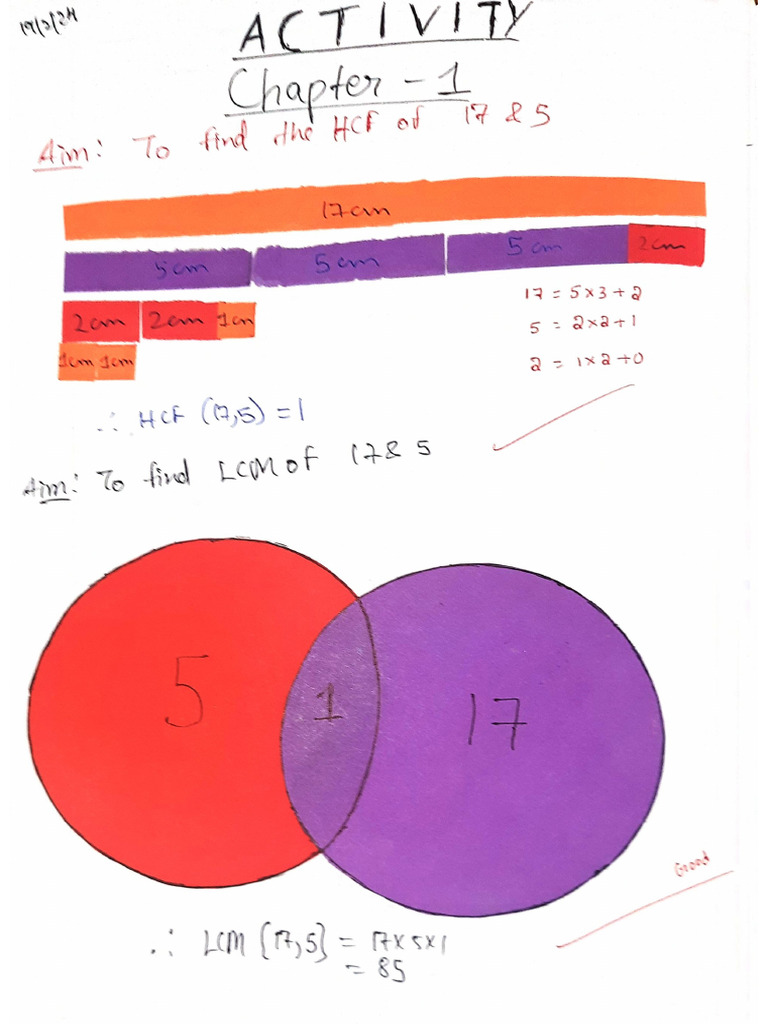 19/3/24
ACTIVITY
Chapter - 1
Aim: To find the HCF of 17 & 5
17cm
5cm 5cm 5cm 2cm
2cm 2cm 1cm
1cm 1cm
17 = 5×3+2
5 = 2×2+1
2 = 1×2+0
∴ HCF (17,5) = 1
Aim: To find LCM of 17 & 5
5 1 17
Good
∴ LCM {17,5} = 17×5×1
= 85